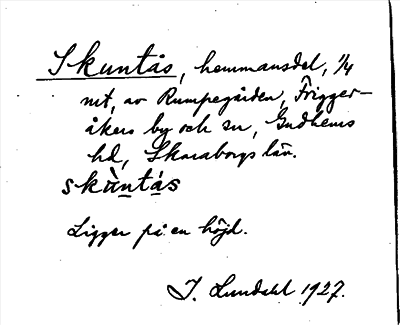 Skuntås, hemmansdel, 1/4
mt, av Rumpegården, Frigger-
åkers by och sn, Gudhems
hd, Skaraborgs län.
skùntás
Ligger på en höjd.
J. Lundahl 1927.